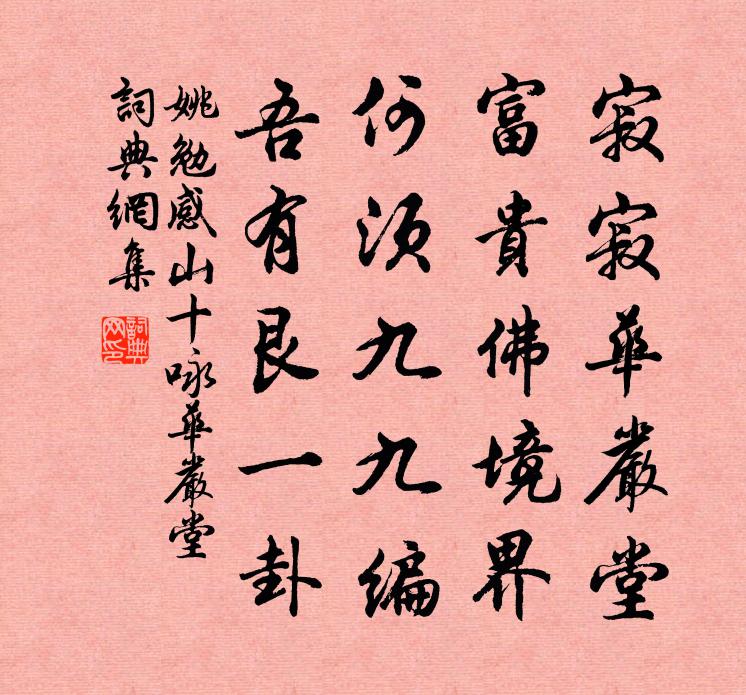 寂寂華嚴堂
富貴佛境界
何須九九編
吾有艮一卦
姚勉感山十咏華嚴堂
詞典網集
詞典網印